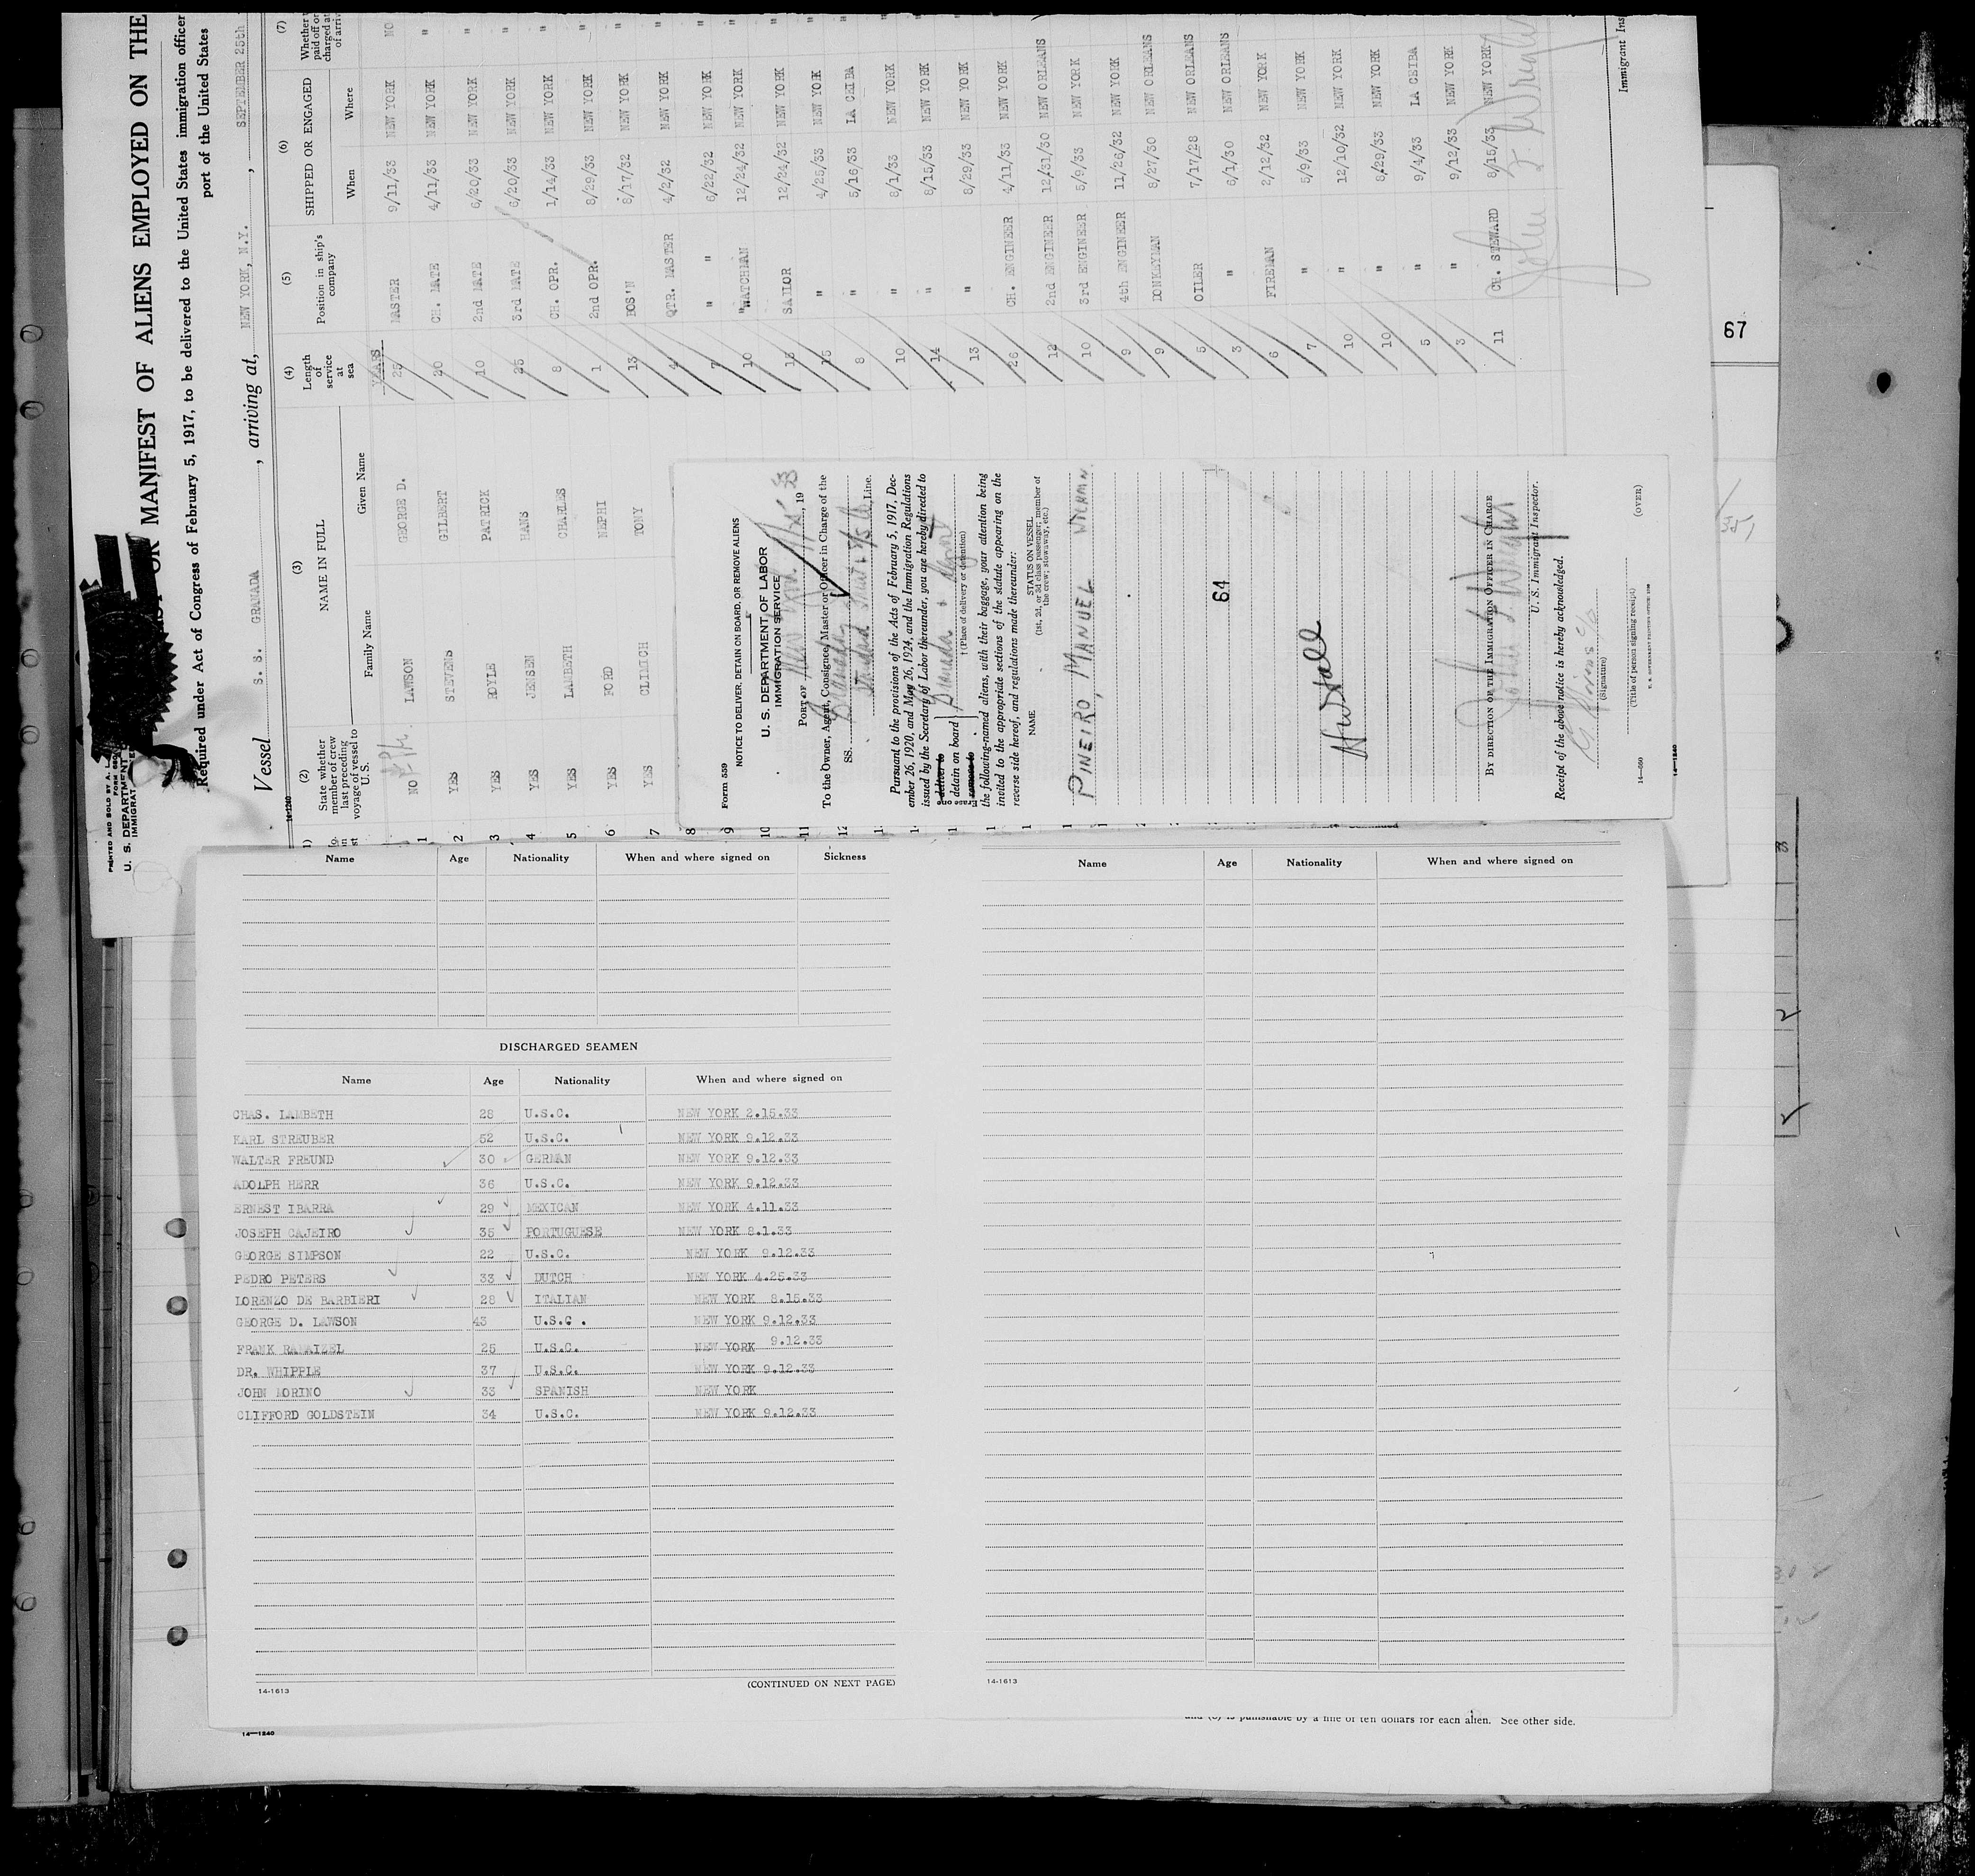 PRINTED AND SOLD BY A. L.
U. S. DEPARTMENT
IMMIGRAT
OR MANIFEST OF ALIENS EMPLOYED ON THE
Required under Act of Congress of February 5, 1917, to be delivered to the United States immigration officer
port of the United States
Vessel S. S. GRANADA, arriving at, NEW YORK, N.Y., SEPTEMBER 25th
(2) (3) (4) (5) (6) (7)
State whether member of crew last preceding voyage of vessel to U.S.
NAME IN FULL
Family Name Given Name
Length of service at sea
Position in ship's company
SHIPPED OR ENGAGED
When Where
YEARS
NO LAWSON GEORGE D. 25 MASTER 9/11/33 NEW YORK NO
1 YES STEVENS GILBERT 20 CH. MATE 4/11/33 NEW YORK "
2 YES ROYLE PATRICK 10 2nd MATE 6/20/33 NEW YORK "
3 YES JENSEN HANS 25 3rd MATE 6/20/33 NEW YORK "
4 YES LAMBETH CHARLES 8 CH. OPR. 1/14/33 NEW YORK "
5 YES FORD NEPHI 1 2nd OPR. 8/29/33 NEW YORK "
6 YES CLILICH TONY 13 BOS'N 8/17/32 NEW YORK "
7 4 QTR. MASTER 4/2/32 NEW YORK "
8 7 " " 6/22/32 NEW YORK "
9 10 WATCHMAN 12/24/32 NEW YORK "
10 15 SAILOR 12/24/32 NEW YORK "
11 15 " 4/25/33 NEW YORK "
12 8 " 5/16/33 LA CEIBA "
10 " 8/1/33 NEW YORK "
14 " 8/15/33 NEW YORK "
13 " 8/29/33 NEW YORK "
26 CH. ENGINEER 4/11/33 NEW YORK "
12 2nd ENGINEER 12/31/30 NEW ORLEANS
10 3rd ENGINEER 5/9/33 NEW YORK "
9 4th ENGINEER 11/26/32 NEW YORK "
9 DONKEYMAN 8/27/30 NEW ORLEANS
5 OILER 7/17/28 NEW ORLEANS
3 " 6/1/30 NEW ORLEANS
6 FIREMAN 2/12/32 NEW YORK "
7 " 5/9/33 NEW YORK "
10 " 12/10/32 NEW YORK "
10 " 8/29/33 NEW YORK "
5 " 9/4/33 LA CEIBA "
3 " 9/12/33 NEW YORK "
11 CH. STEWARD 8/15/33 NEW YORK
John F. Wright
Immigrant Ins
67
14-1240
Form 559
NOTICE TO DELIVER, DETAIN ON BOARD, OR REMOVE ALIENS
U. S. DEPARTMENT OF LABOR
IMMIGRATION SERVICE
PORT OF New York 9/25, 1933
To the Owner, Agent, Consignee, Master or Officer in Charge of the
SS. Granada Line.
Pursuant to the provisions of the Acts of February 5, 1917, Dec-
ember 26, 1920, and May 26, 1924, and the Immigration Regulations
issued by the Secretary of Labor thereunder, you are hereby directed to
deliver to
detain on board Granada
remove to
†(Place of delivery or detention)
the following-named aliens, with their baggage, your attention being
invited to the appropriate sections of the statute appearing on the
reverse side hereof, and regulations made thereunder:
NAME STATUS ON VESSEL
(1st, 2d, or 3d class passenger; member of
the crew; stowaway, etc.)
PINEIRO, MANUEL
64
BY DIRECTION OF THE IMMIGRATION OFFICER IN CHARGE
John F. Wright
U. S. Immigrant Inspector.
Receipt of the above notice is hereby acknowledged.
(Signature)
(Title of person signing receipt)
14-560 U. S. GOVERNMENT PRINTING OFFICE (OVER)
14-1240
Name Age Nationality When and where signed on Sickness
DISCHARGED SEAMEN
Name Age Nationality When and where signed on
CHAS. LAMBETH 28 U.S.C. NEW YORK 2.15.33
KARL STREUBER 52 U.S.C. NEW YORK 9.12.33
WALTER FREUND 30 GERMAN NEW YORK 9.12.33
ADOLPH HERR 36 U.S.C. NEW YORK 9.12.33
ERNEST IBARRA 29 MEXICAN NEW YORK 4.11.33
JOSEPH CAJEIRO 35 PORTUGUESE NEW YORK 8.1.33
GEORGE SIMPSON 22 U.S.C. NEW YORK 9.12.33
PEDRO PETERS 33 DUTCH NEW YORK 4.25.33
LORENZO DE BARBIERI 28 ITALIAN NEW YORK 8.15.33
GEORGE D. LAWSON 43 U.S.C. NEW YORK 9.12.33
FRANK RAMAIZEL 25 U.S.C. NEW YORK 9.12.33
DR. WHIPPLE 37 U.S.C. NEW YORK 9.12.33
JOHN MORINO 33 SPANISH NEW YORK
CLIFFORD GOLDSTEIN 34 U.S.C. NEW YORK 9.12.33
14-1613 (CONTINUED ON NEXT PAGE)
Name Age Nationality When and where signed on
14-1613
14-1240
and (6) is punishable by a fine of ten dollars for each alien. See other side.